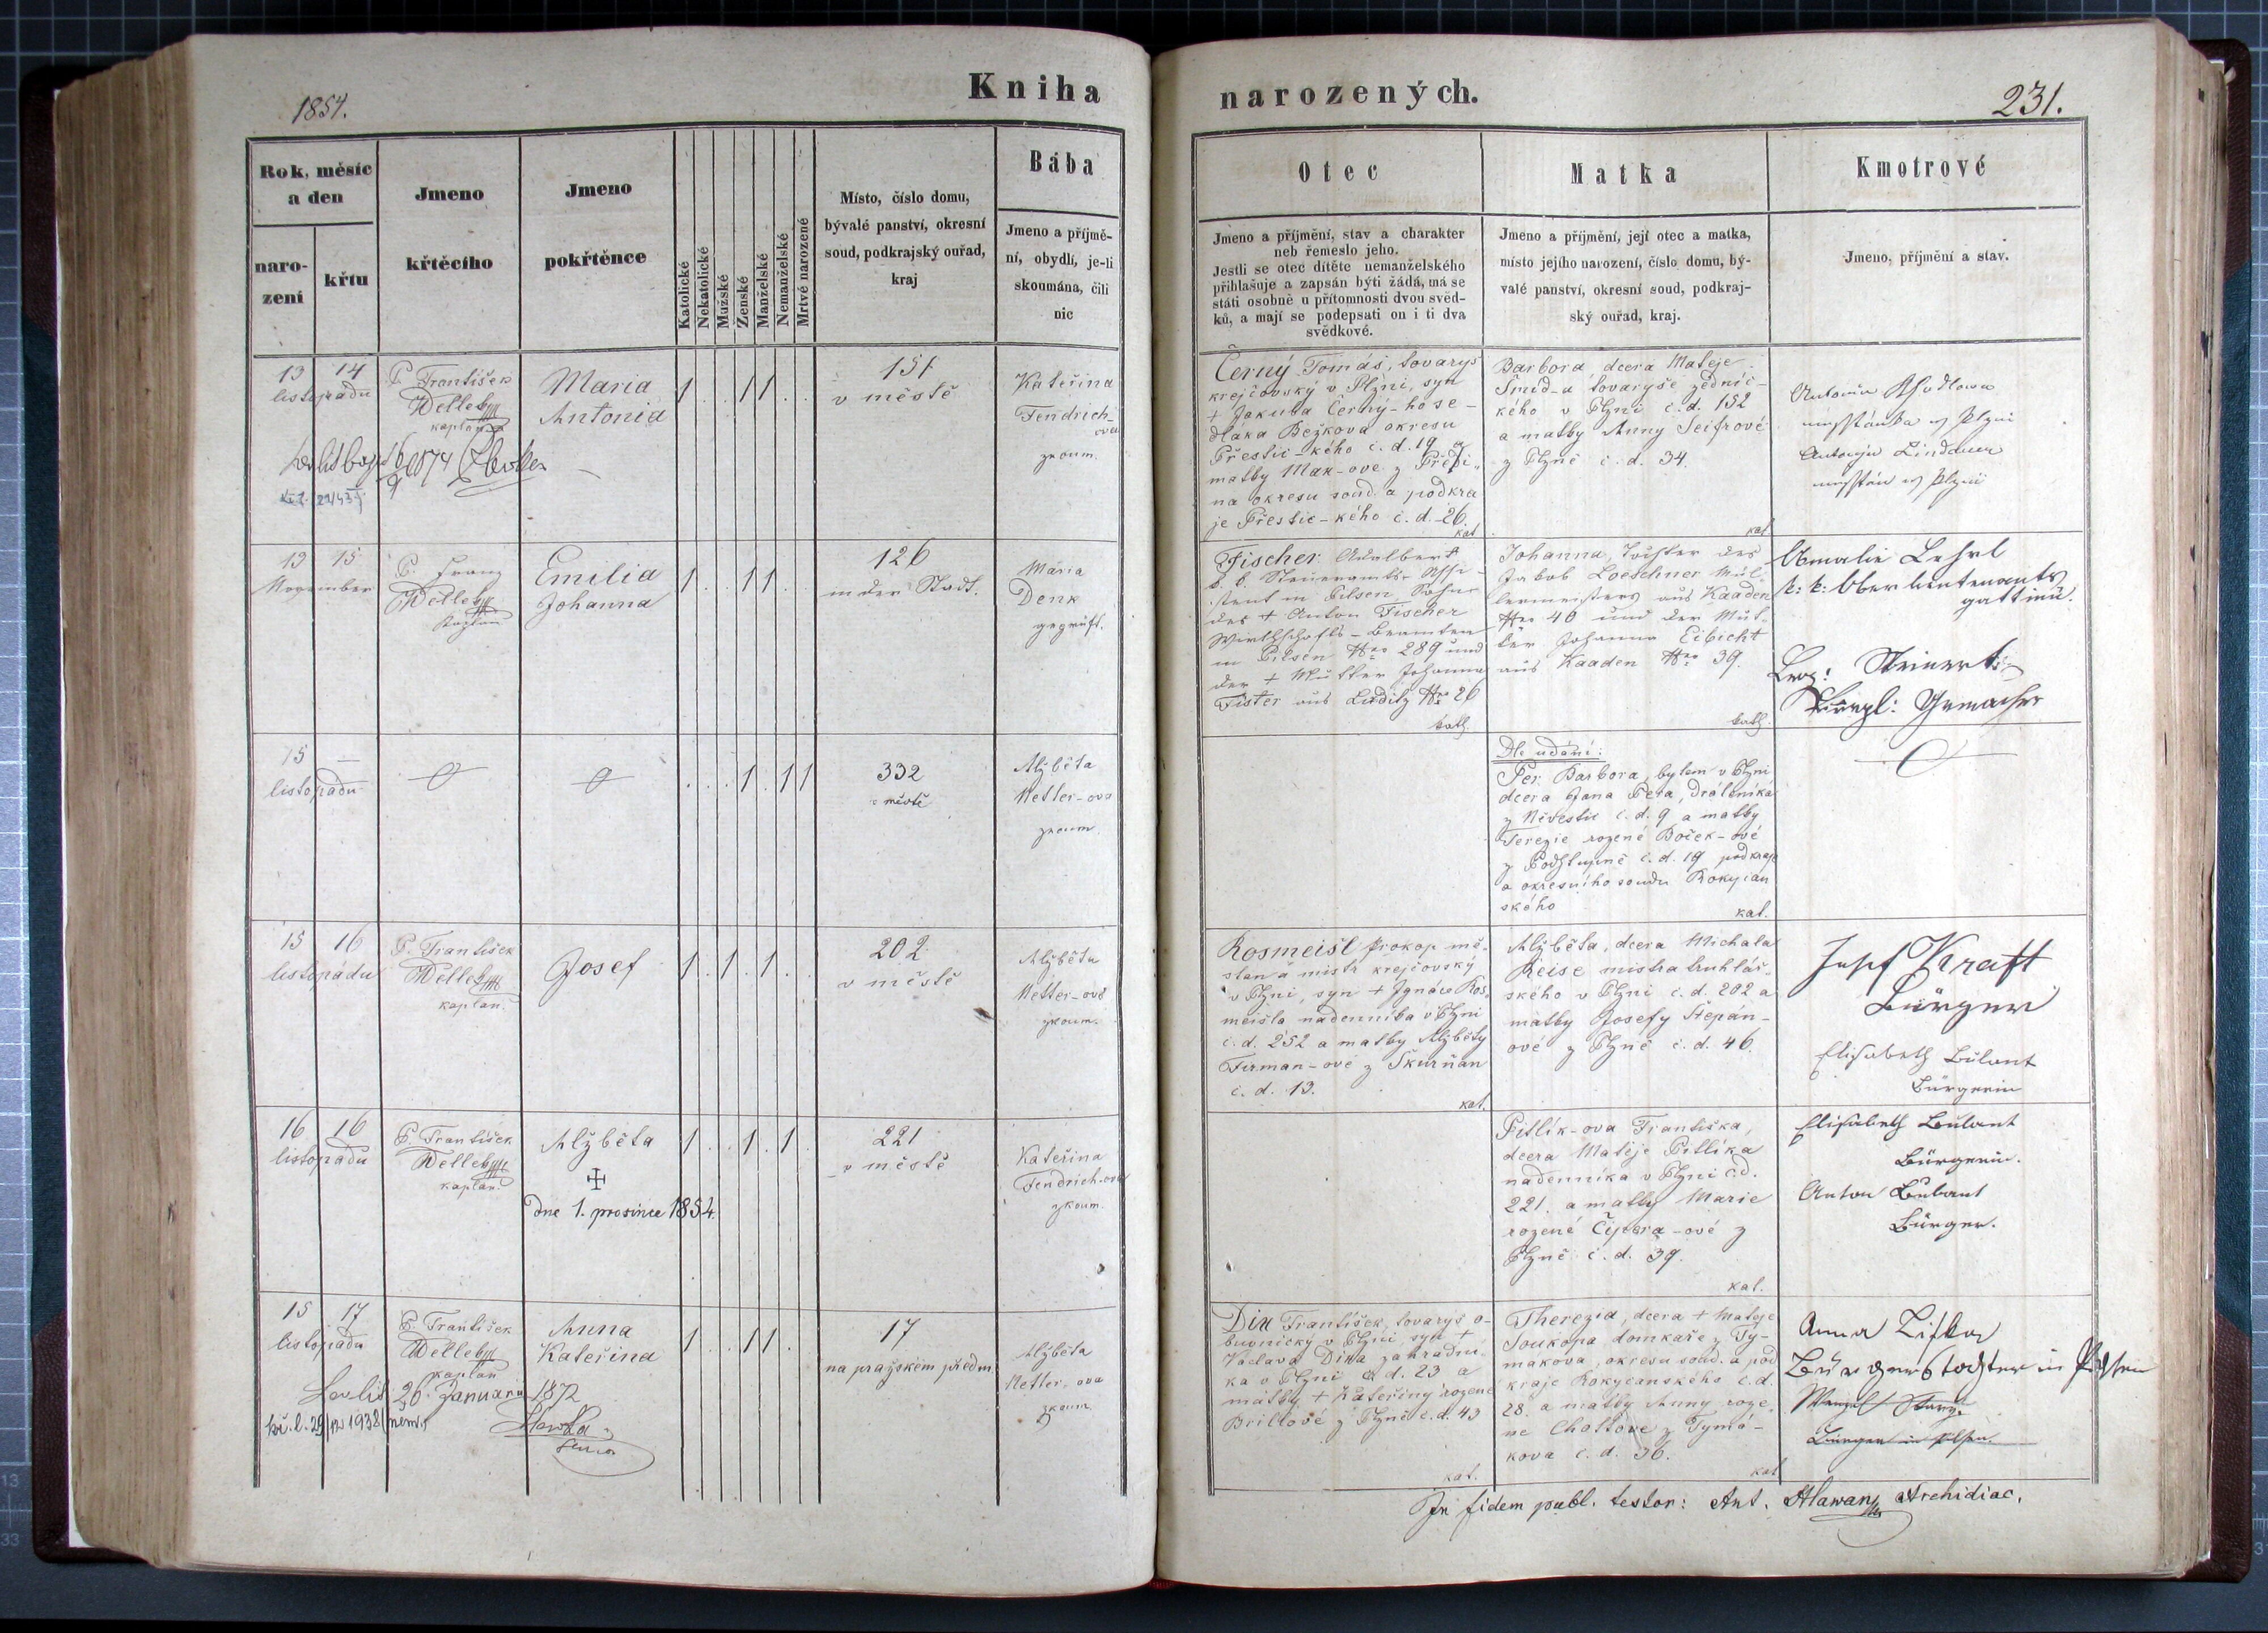 1854.
Kniha
narozených.
231.
Rok, měsíc
a den
naro-
zení
křtu
Jmeno
křtěcího
Jmeno
pokřtěnce
Katolické
Nekatolické
Mužské
Ženské
Manželské
Nemanželské
Mrtvé narozené
Místo, číslo domu,
bývalé panství, okresní
soud, podkrajský ouřad,
kraj
Bába
Jmeno a příjmě-
ní, obydlí, je-li
skoumána, čili
nic
Otec
Jmeno a příjmění, stav a charakter
neb řemeslo jeho.
Jestli se otec dítěte nemanželského
přihlašuje a zapsán býti žádá, má se
státi osobně u přítomnosti dvou svěd-
ků, a mají se podepsati on i ti dva
svědkové.
Matka
Jmeno a příjmění, její otec a matka,
místo jejího narození, číslo domu, bý-
valé panství, okresní soud, podkraj-
ský ouřad, kraj.
Kmotrové
Jmeno, příjmění a stav.
13 14
listopadu
P. František
Welleby
kaplan
Maria
Antonia
1 . . 1 1 . .
151
v městě
Kateřina
Fendrich-
ova
zkoum.
Černý Tomáš, tovaryš
krejčovský v Plzni, syn
+ Jakuba Černý-ho se-
dláka Bežkova okresu
Přestic-kého č. d. 19 a
matky Mak-ove z Předi-
na okresu soud. a podkra
je Přestic-kého č. d. 26.
kat
Barbora, dcera Mateje
Šmid-a tovaryše zednic-
kého v Plzni č. d. 152
a matky Anny Seifrové
z Plzně č. d. 34.
kat
Antonia
w Plzni
Antonin Lindauer
w Plzni
1874
13 15
November
P. Franz
Welleby
Kaplan
Emilia
Johanna
1 . . 1 1
126
in der Stadt.
Maria
Denk
geprüft.
Fischer Adalbert
k. k. Steueramts-Assi-
stent in Pilsen, Sohn
des + Anton Fischer
Wirthschafts-Beamten
in Pilsen Nro 289 und
der + Mutter Johanna
Fister aus Luditz Nro 26
kath.
Johanna, Tochter des
Jakob Loeschner Mül-
lermeisters aus Kaaden
Nro 40 und der Mut-
ter Johanna Eibicht
aus Kaaden Nro 39.
kath.
Amalie Lehrl
k: k: Oberlieutenants
gattinn.
Steinert
15 —
listopadu
. . . 1 . 1 1
332
v městě
Alžběta
Netler-ova
zkoum.
Dle udání:
Per. Barbora, bytem v Plzni
dcera Jana Pera, dráteníka
z Něvěstic č. d. 9 a matky
Terezie rozené Boček-ové
z Podstupně č. d. 19 podkraje
a okresního soudu Rokycan
ského
kat.
15 16
listopadu
P. František
Welleby
kaplan.
Josef
1 . 1 . 1 . .
202
v městě
Alžběta
Netler-ová
zkoum.
Kosmeisl Prokop mě-
stan a mistr krejčovský
v Plzni, syn + Ignáce Kos-
meisla nadenníka v Plzni
č. d. 252 a matky Alžběty
Firman-ové z Škurňan
č. d. 13.
kat.
Alžběta, dcera Michala
Reise mistra truhlář-
ského v Plzni č. d. 202 a
matky Josefy Štepán-
ové z Plzně č. d. 46.
Josef Kraft
Bürger
Elisabeth Bulant
Bürgerin
16 16
listopadu
P. František
Welleby
kaplan.
Alžběta
dne 1. prosince 1854.
1 . . 1 . 1 .
221
v městě
Kateřina
Fendrich-ova
zkoum.
Pitlík-ova Františka,
dcera Matěje Pitlíka
nadenníka v Plzni č.d.
221. a matky Marie
rozené Čipera-ové z
Plzně č. d. 39.
kat.
Elisabeth Bulant
Bürgerin.
Anton Bulant
Bürger.
15 17
listopadu
P. František
Welleby
kaplan
Anna
Kateřina
1 . . 1 1 . .
17
na pražském předm.
Alžběta
Netler-ova
zkoum.
26. Januarii 1872
kř. l. 29/12 1938 (něm.)
Din František, tovaryš o-
buvnický v Plzni, syn +
Václava Dina zahradní-
ka v Plzni č. d. 23 a
matky + Kateřiny rozené
Brillové z Plzně č. d. 43
kat.
Therezia, dcera + Mateje
Soukopa domkaře z Ty-
makova, okresu soud. a pod
kraje Rokycanského č. d.
28. a matky Anny roze-
né Chottove z Tymá-
kova č. d. 36.
kat
Anna
Bürgerstochter in Pilsen
Bürger in Pilsen.
In fidem publ. testor: Ant. Hlawan Archidiac.